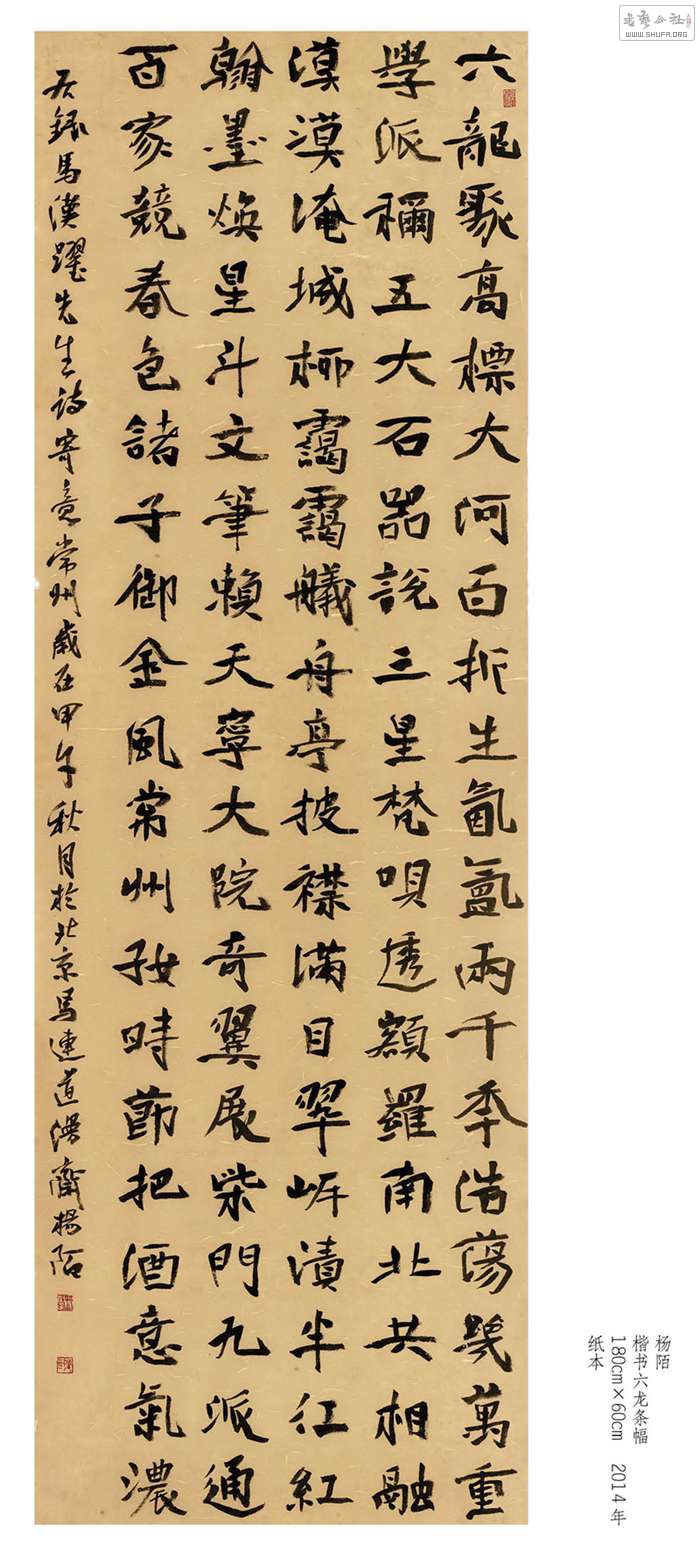 六龍聚高標大河百折生氤氳兩千秊浩蕩幾萬重
學派穪五大石器說三星梵唄透額羅南北共相融
漠漠淹城柳靄靄艤舟亭披襟滿目翠崕漬半江紅
翰墨煥星斗文筆賴天寧大院奇翼展柴門九派通
百家競春色諸子御金風常州好時節把酒意氣濃
右錄馬漢躍先生詩寄意常州歲在甲午秋月於北京馬連道齋楊陌
杨陌
楷书六龙条幅
180cm×60cm 2014年
纸本
书艺公社
WWW.SHUFA.ORG